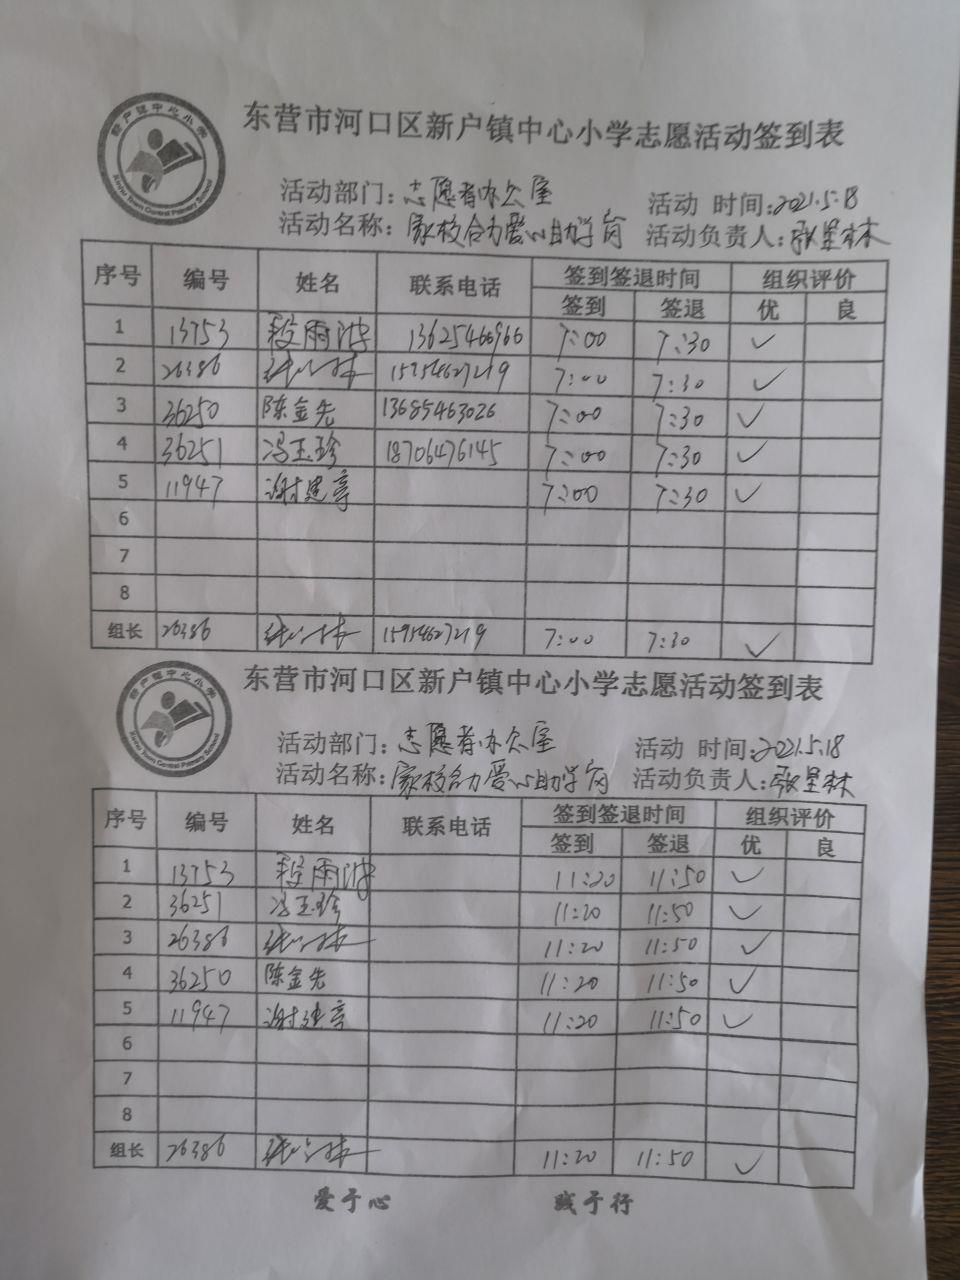 新户镇中心小学
Xinhu Town Central Primary School
东营市河口区新户镇中心小学志愿活动签到表
活动部门：志愿者办公室 活动 时间：2021.5.18
活动名称：家校合力爱心助学岗 活动负责人：
序号 编号 姓名 联系电话 签到签退时间 组织评价
签到 签退 优 良
1 13753 段雨 13625466966 7:00 7:30 ✓
2 26386 15954627219 7:00 7:30 ✓
3 36250 陈金先 13685463026 7:00 7:30 ✓
4 36251 冯玉珍 18706476145 7:00 7:30 ✓
5 11947 谢建亭 7:00 7:30 ✓
6
7
8
组长 26386 15954627219 7:00 7:30 ✓
新户镇中心小学
Xinhu Town Central Primary School
东营市河口区新户镇中心小学志愿活动签到表
活动部门：志愿者办公室 活动 时间：2021.5.18
活动名称：家校合力爱心助学岗 活动负责人：
序号 编号 姓名 联系电话 签到签退时间 组织评价
签到 签退 优 良
1 13753 段雨 11:20 11:50 ✓
2 36251 冯玉珍 11:20 11:50 ✓
3 26386 11:20 11:50 ✓
4 36250 陈金先 11:20 11:50 ✓
5 11947 谢建亭 11:20 11:50 ✓
6
7
8
组长 26386 11:20 11:50 ✓
爱于心 践于行